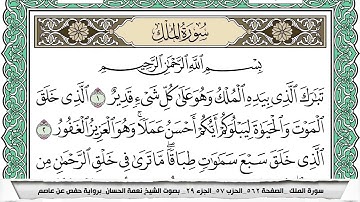 سُورَةُ المُلْكِ
بِسْمِ اللَّهِ الرَّحْمَٰنِ الرَّحِيمِ
تَبَارَكَ الَّذِي بِيَدِهِ الْمُلْكُ وَهُوَ عَلَىٰ كُلِّ شَيْءٍ قَدِيرٌ ١ الَّذِي خَلَقَ
الْمَوْتَ وَالْحَيَوٰةَ لِيَبْلُوَكُمْ أَيُّكُمْ أَحْسَنُ عَمَلًا ۚ وَهُوَ الْعَزِيزُ الْغَفُورُ ٢
الَّذِي خَلَقَ سَبْعَ سَمَٰوَٰتٍ طِبَاقًا ۖ مَّا تَرَىٰ فِي خَلْقِ الرَّحْمَٰنِ مِن
سورة الملك _ الصفحة ٥٦٢ _ الحزب ٥٧ _ الجزء ٢٩ _ بصوت الشيخ نعمة الحسان برواية حفص عن عاصم